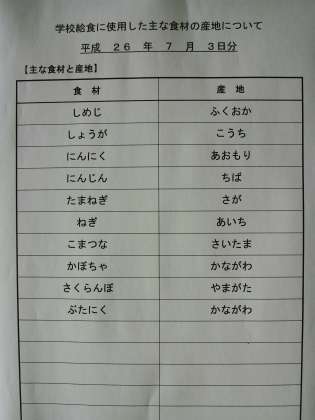 学校給食に使用した主な食材の産地について
平成 26 年 7 月 3日分
【主な食材と産地】
食 材 産 地
しめじ ふくおか
しょうが こうち
にんにく あおもり
にんじん ちば
たまねぎ さが
ねぎ あいち
こまつな さいたま
かぼちゃ かながわ
さくらんぼ やまがた
ぶたにく かながわ